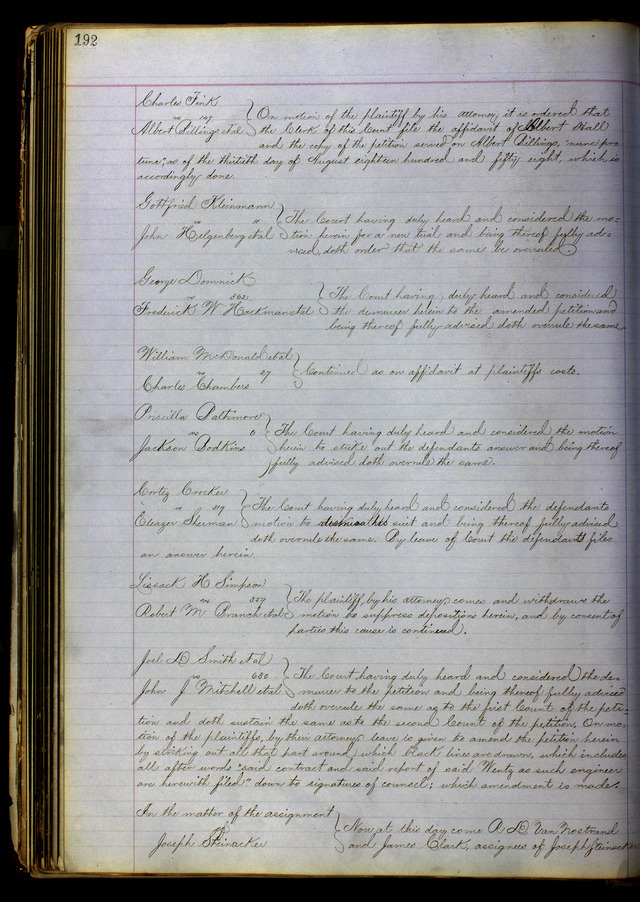 192
Charles Fink
vs 149 } On motion of the plaintiff by his attorney, it is ordered that
Albert Billings etal the Clerk of this Court file the affidavit of Albert Hall
and the copy of the petition served on Albert Billings, "nunc pro
tunc", as of the thirtieth day of August eighteen hundred and fifty eight, which is
accordingly done.
Gottfried Kleinmann
vs 11 } The Court having duly heard and considered the mo-
John Helgenberg etal tion herein for a new trial and being thereof fully ad-
vised, doth order that the same be overruled.
George Dominick
vs 362 } The Court having duly heard and considered
Frederick W Hackman etal the demurrer herein to the amended petition and
being thereof fully advised doth overrule the same
William McDonald etal
vs 27 } Continued as on affidavit at plaintiffs costs.
Charles Chambers
Priscilla Baltimore
vs 6 } The Court having duly heard and considered the motion
Jackson Bodkins herein to strike out the defendants answer and being thereof
fully advised doth overrule the same.
Cortez Crocker
vs 519 } The Court having duly heard and considered the defendants
Eleazer Sherman motion to dismiss this suit and being thereof fully advised
doth overrule the same. By leave of Court the defendant files
an answer herein.
Lissack H Simpson
vs 359 } The plaintiff, by his attorney, comes and withdraws the
Robert M Branch etal motion to suppress depositions herein, and by consent of
parties this cause is continued.
Joel D Smith etal
vs 680 } The Court having duly heard and considered the de-
John J Mitchell etal murrer to the petition and being thereof fully advised
doth overrule the same as to the first Count of the peti-
tion and doth sustain the same as to the second Count of the petition, On mo-
tion of the plaintiffs, by their attorney, leave is given to amend the petition herein
by striking out all that part around which black lines are drawn, which includes
all after words "said contract and said report of said Wentz as such engineer
are herewith filed" down to signatures of counsel; which amendment is made.
In the matter of the assignment
of } Now at this day come A D Van Nostrand
Joseph Steinacker and James Clark, assignees of Joseph Steinacker